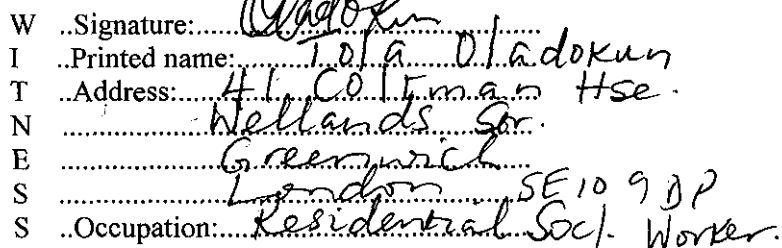 W ..Signature: Oladokun
I ..Printed name: Tola Oladokun
T ..Address: 41. Coltman Hse.
N Wellands Str.
E Greenwich
S London SE10 9DP
S ..Occupation: Residential Socl. Worker.